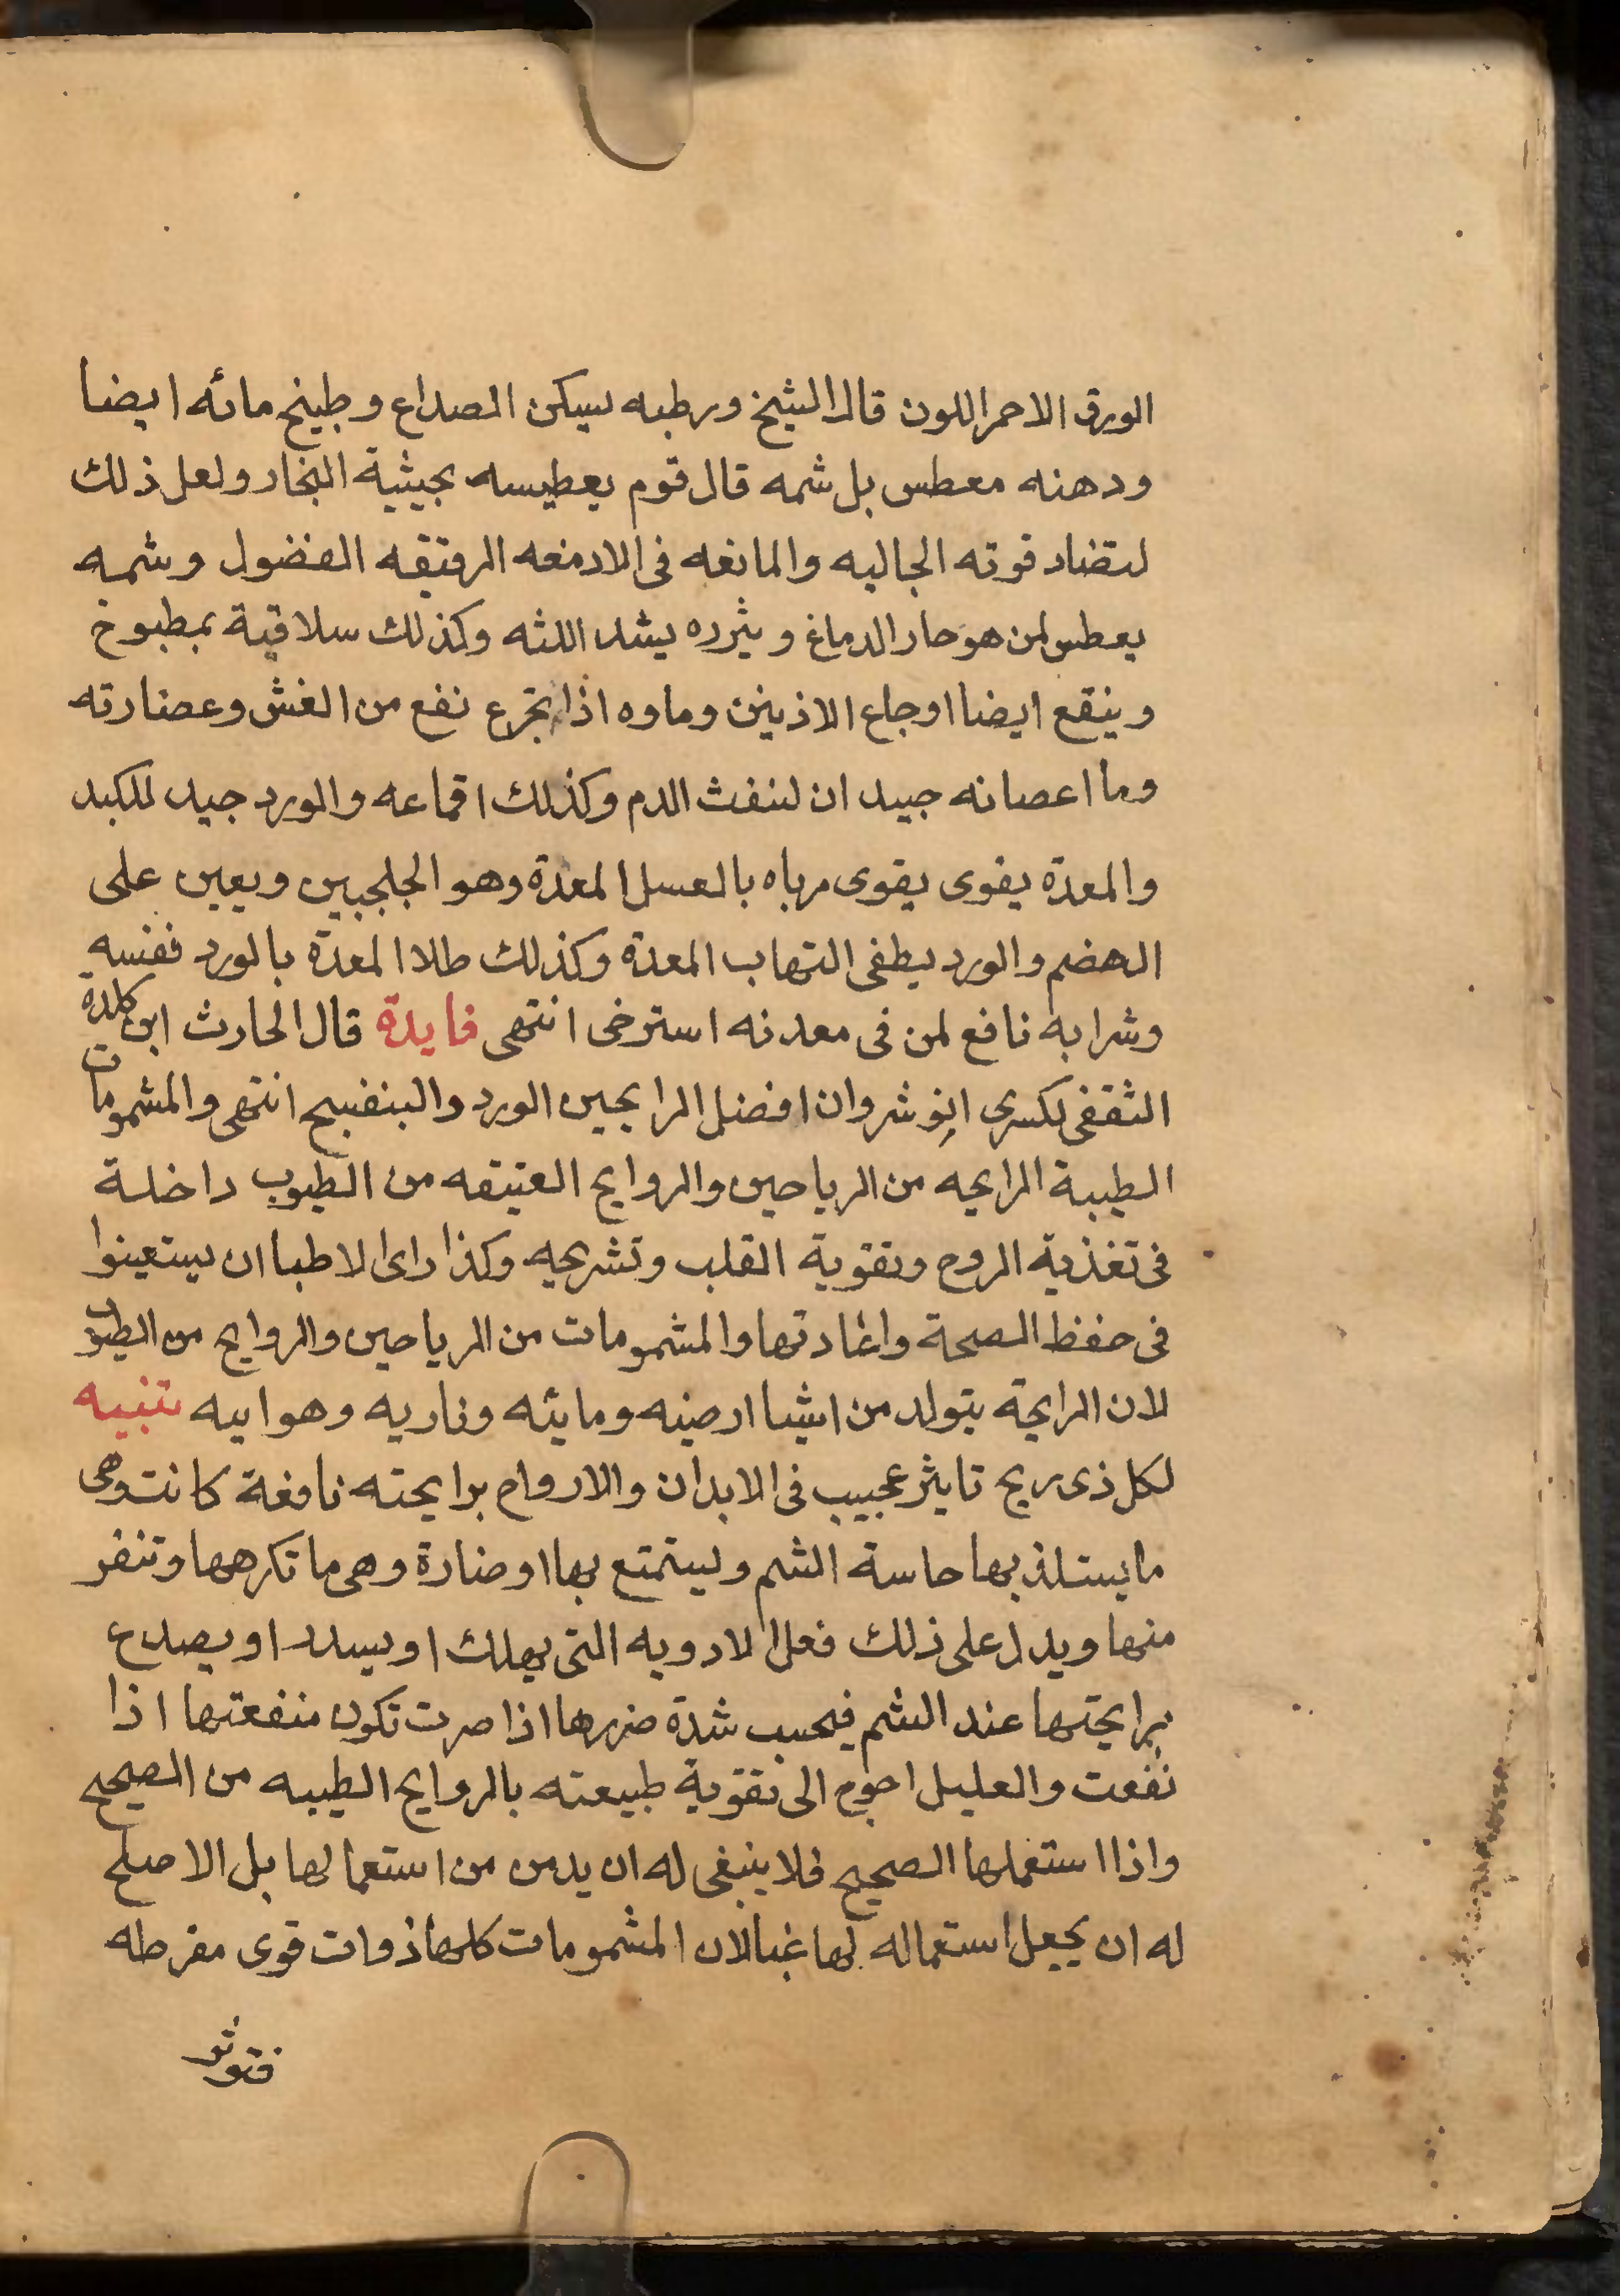 الورق الاحمر اللون قال الشيخ ورطبه يسكن الصداع وطبيخ مائه ايضا
ودهنه معطس بل شمه قال قوم يعطيسه بجيثية البخار ولعل ذلك
لتضاد قوته الجاليه والمانعه فى الادمغه الرقيقه الفضول وشمه
يعطس لمن هو حار الدماغ ويثرده يشد اللثه وكذلك سلاقية بمطبوخ
وينقع ايضا اوجاع الاذينن وماوه اذا تجرع نفع من الغش وعصارته
وما اعصانه جيد ان لنفث الدم وكذلك اقماعه والورد جيد للكبد
والمعدة يقوى يقوى مرباه بالعسل المعدة وهو الجلجبين ويعين على
الهضم والورد يطفى التهاب المعدة وكذلك طلا المعدة بالورد ففنسه
وشرابه نافع لمن فى معدنه استرخى انتهى فايدة قال الحارث ابن كلدة
الثقفى لكسرى انوشروان افضل الرايحين الورد والبنفسج انتهى والمشمومات
الطيبة الرايحه من الرياحين والروايح العتيقه من الطيوب داخلة
فى تغذية الروح وتقوية القلب وتشريحه وكذا راى الاطبا ان يستعينوا
فى حفظ الصحة واعادتها والمشمومات من الرياحين والروايح من الطيوب
لان الرايحة يتولد من اشيا ارضيه ومايئه وناريه وهوابيه تنبيه
لكل ذى ريح تاثير عجيب فى الابدان والارواح برايحته نافعة كانت وهى
ما يستلذ بها حاسة الشم ويستمتع بها او ضارة وهى ما تكرهها وتنفر
منها ويدل على ذلك فعل الادويه التى يهلك او يسدد او يصدع
برايحتها عند الشم فبحسب شدة ضررها اذا ضرت تكون منفعتها اذا
نفعت والعليل احوج الى تقوية طبيعته بالروايح الطيبه من الصحيح
واذا استعملها الصحيح فلا ينبغى له ان يدمن من استعمالها بل الاصلح
له ان يجعل استعماله لها غبا لان المشمومات كلها ذوات قوى مفرطه
فتوثر